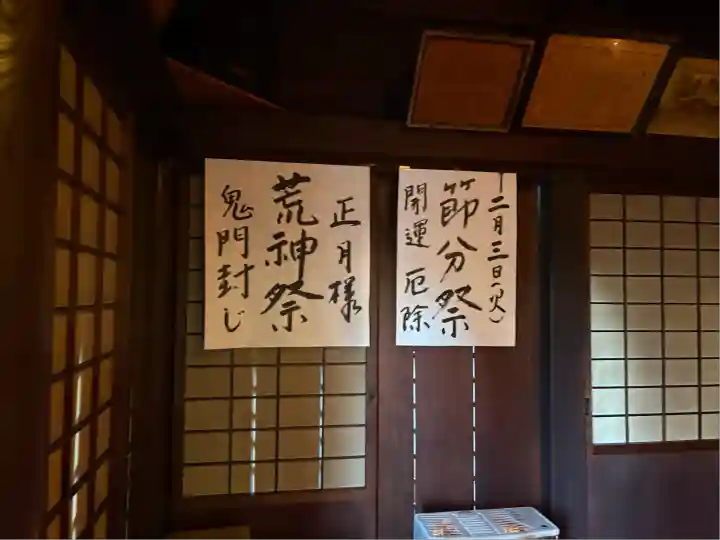 二月三日(火)
節分祭
開運 厄除
正月様
荒神祭
鬼門封じ